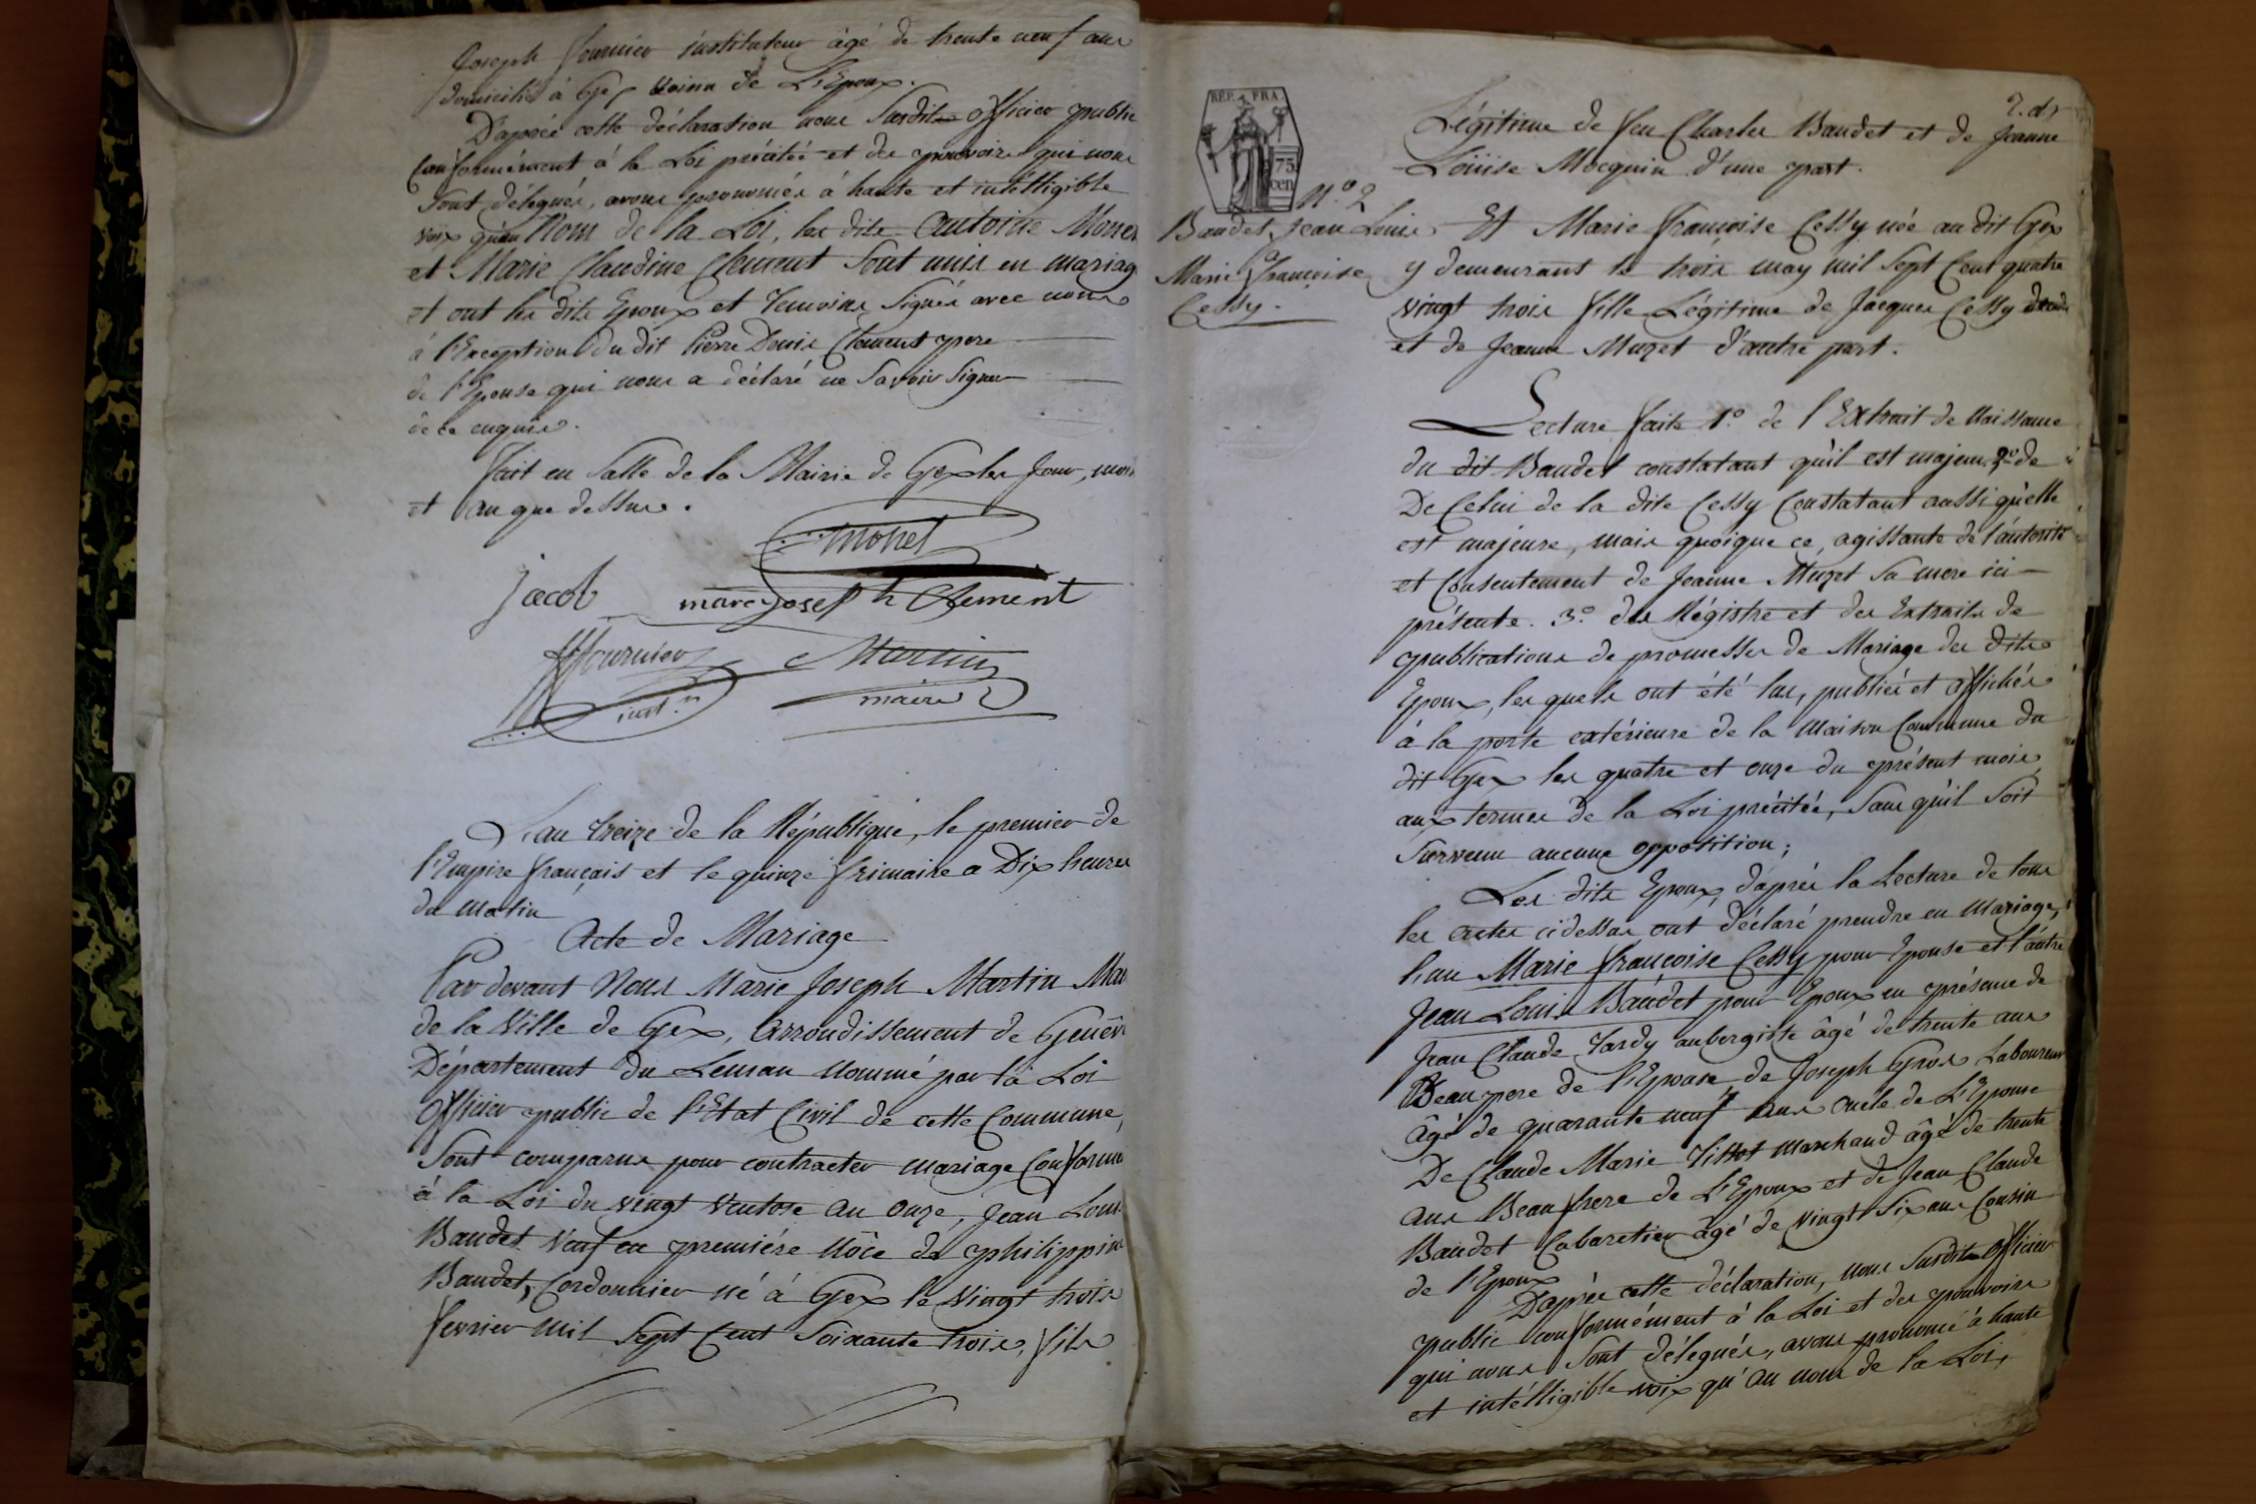 Joseph fournier instituteur âgé de trente neuf ans
domicilié à Gex voisin de L'Epoux.
D'après cette déclaration nous Susdits officier public
Conformément à la Loi précitée et des pouvoirs qui nous
Sont délégués, avons prononcés à haute et intélligible
voix qu'au Nom de la Loi, les dits Antoine Monet
et Marie Claudine Clement Sont unis en mariag
et ont les dits Epoux et témoins Signés avec nous
à l'Exception du dit Pierre Denis Clement pere
de l'Epouse qui nous a déclaré ne Savoir Signer
de ce enquis.
fait en Salle de la Mairie de Gex les Jour, mois
et an que dessus.
Monet
Jacob marc Joseph Clement
Fournier Martin
inst.r maire
L'an treize de la République, le premier de
l'Empire français et le quinze frimaire a Dix heures
du matin
Acte de Mariage
Par devant Nous Marie Joseph Martin Mai
de la Ville de Gex, Arrondissement de Genêv
Département du Leman Nommé par la Loi
Officier public de l'Etat Civil de cette Commune,
Sont comparus pour contracter mariage Conformé
à la Loi du vingt Ventose an onze, Jean Louis
Baudet Veuf en premiére Nôce de philippine
Baudet, Cordonnier né à Gex le Vingt trois
fevrier mil Sept Cent Soixante trois, fils
2.
REP. FRA.
75 cen
Légitime de feu Charles Baudet et de Jeanne
Loüise Mocquin d'une part.
N.o 2
Baudet Jean Louis
Marie Françoise
Cessy.
Et Marie françoise Cessy née au dit Gex
y demeurant le trois may mil Sept Cent quatre
vingt trois fille Légitime de Jacques Cessy
et de Jeanne Muzet d'autre part.
Lecture faite 1.o de l'Extrait de Naissance
du dit Baudet constatant qu'il est majeur, 2.o de
De Celui de la dite Cessy Constatant aussi qu'elle
est majeure, mais quoique ce, agissante de l'autorité
et Consentement de Jeanne Muzet Sa mere ici
présente. 3.o des Régistre et des Extraits de
publications de promesses de Mariage des dits
Epoux, les quels ont été lus, publiés et affichés
à la porte extérieure de la Maison Commune du
dit Gex les quatre et onze du présent mois
aux termes de la Loi précitée, Sans qu'il Soit
Survenu aucune opposition;
Les dits Epoux, d'après la Lecture de tous
les actes cidessus ont déclaré prendre en Mariage,
l'un Marie françoise Cessy pour Epouse et l'autre
Jean Louis Baudet pour Epoux en présence de
Jean Claude Tardy aubergiste âgé de trente ans
Beau pere de l'Epouse de Joseph Gros Laboureur
âgé de quarante neuf ans oncle de L'Epouse
De Claude Marie Tissot marchand âgé de trente
ans Beau frere de L'Epoux et de Jean Claude
Baudet Cabaretier âgé de vingt Six ans Cousin
de l'Epoux
D'après cette déclaration, nous Susdits officier
public conformément à la Loi et des pouvoirs
qui nous Sont délégués, avons prononcé à haute
et intélligible voix qu'au nom de la Loi,